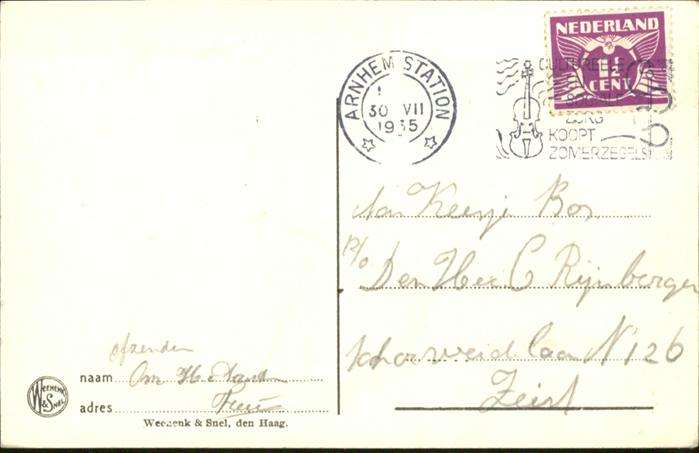 NEDERLAND
1½
CENT
ARNHEM STATION
30 VII
1935
CULTUREELE
ZORG
KOOPT
ZOMERZEGELS
Aan Keesje Bos
p/o Den Heer C Rijnberger
laan N 126
Zeist
afzender
naam Om
adres
WEENENK & SNEL
Weenenk & Snel, den Haag.